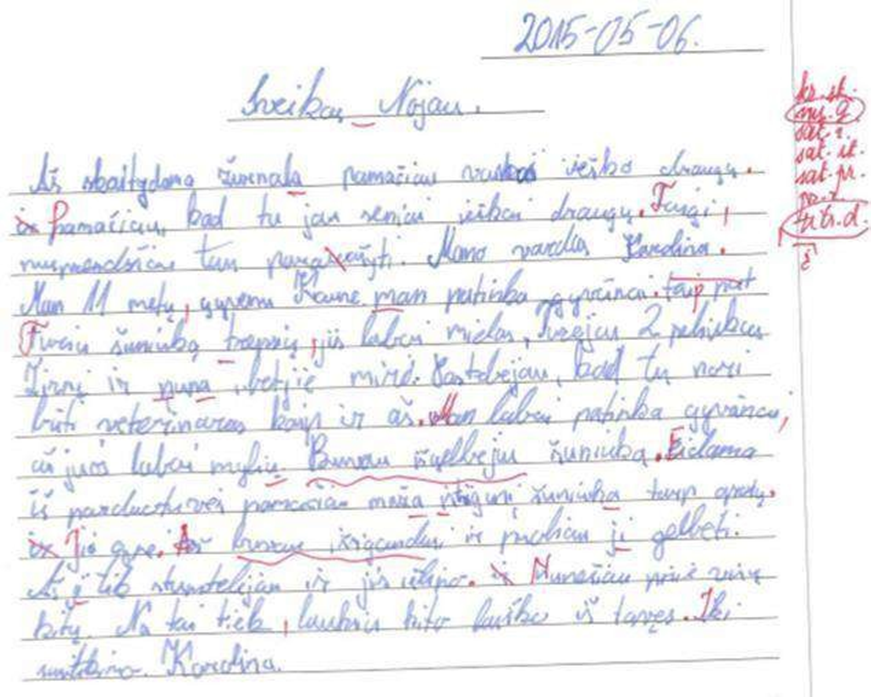 2015-05-06.
Sveikas Nojau.
Aš skaitydama žurnala pamačiau vaikai ieško draugų.
ir Pamačiau, kad tu jau seniai ieškai draugų. Taigi,
nusprendžiau tau parašyti. Mano vardas Karolina.
Man 11 metų, gyvenu Kaune man patinka gyvūnai. taip pat
Turiu šuniuką, jis labai mielas, Turėjau 2 peliukus
Žirnį ir, bet jie mirė. Pastebėjau, kad tu nori
būti veterinaras kaip ir aš. Man labai patinka gyvūnai,
aš juos labai myliu. Buvau išgelbėjus šuniuką. Eidama
iš parduotuvės pamačiau maža įstigusį šuniuka tarp
ir Jis. Aš buvau išsigandusi ir puoliau jį gelbėti.
Aš jį tik stumtelėjau ir jis išlipo. ir Nunešiau prie visų
kitų. Na tai tiek, lauksiu kito laiško iš tavęs. Iki
susitikimo. Karolina.
kr. sk.
sat. r.
sat. sk.
sat. pr.